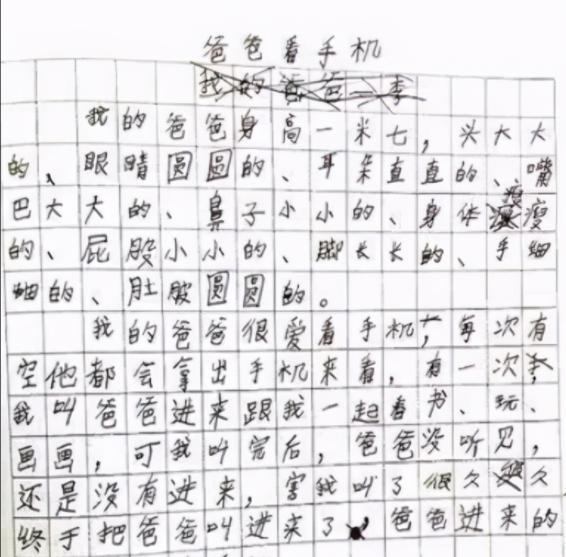 爸爸看手机
我的爸爸一李
我的爸爸身高一米七，头大大
的、眼睛圆圆的、耳朵直直的、嘴
巴大大的、鼻子小小的、身体瘦瘦
的、屁股小小的、脚长长的、手细
细的、肚皮圆圆的。
我的爸爸很爱看手机，每次有
空他都会拿出手机来看，有一次，
我叫爸爸进来跟我一起看书、玩、
画画，可我叫完后，爸爸没听见，
还是没有进来，害我叫了很久久
终于把爸爸叫进来了，爸爸进来的